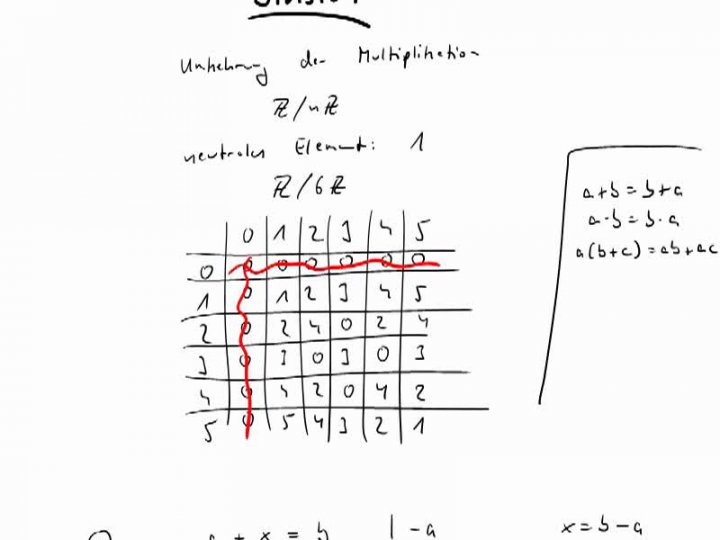 Umkehrung der Multiplikation
ℤ/nℤ
neutrales Element: 1
ℤ/6ℤ
0 1 2 3 4 5
0 0 0 0 0 0 0
1 0 1 2 3 4 5
2 0 2 4 0 2 4
3 0 3 0 3 0 3
4 0 4 2 0 4 2
5 0 5 4 3 2 1
a+b=b+a
a·b=b·a
a(b+c)=ab+ac
a + x = b | -a x=b-a